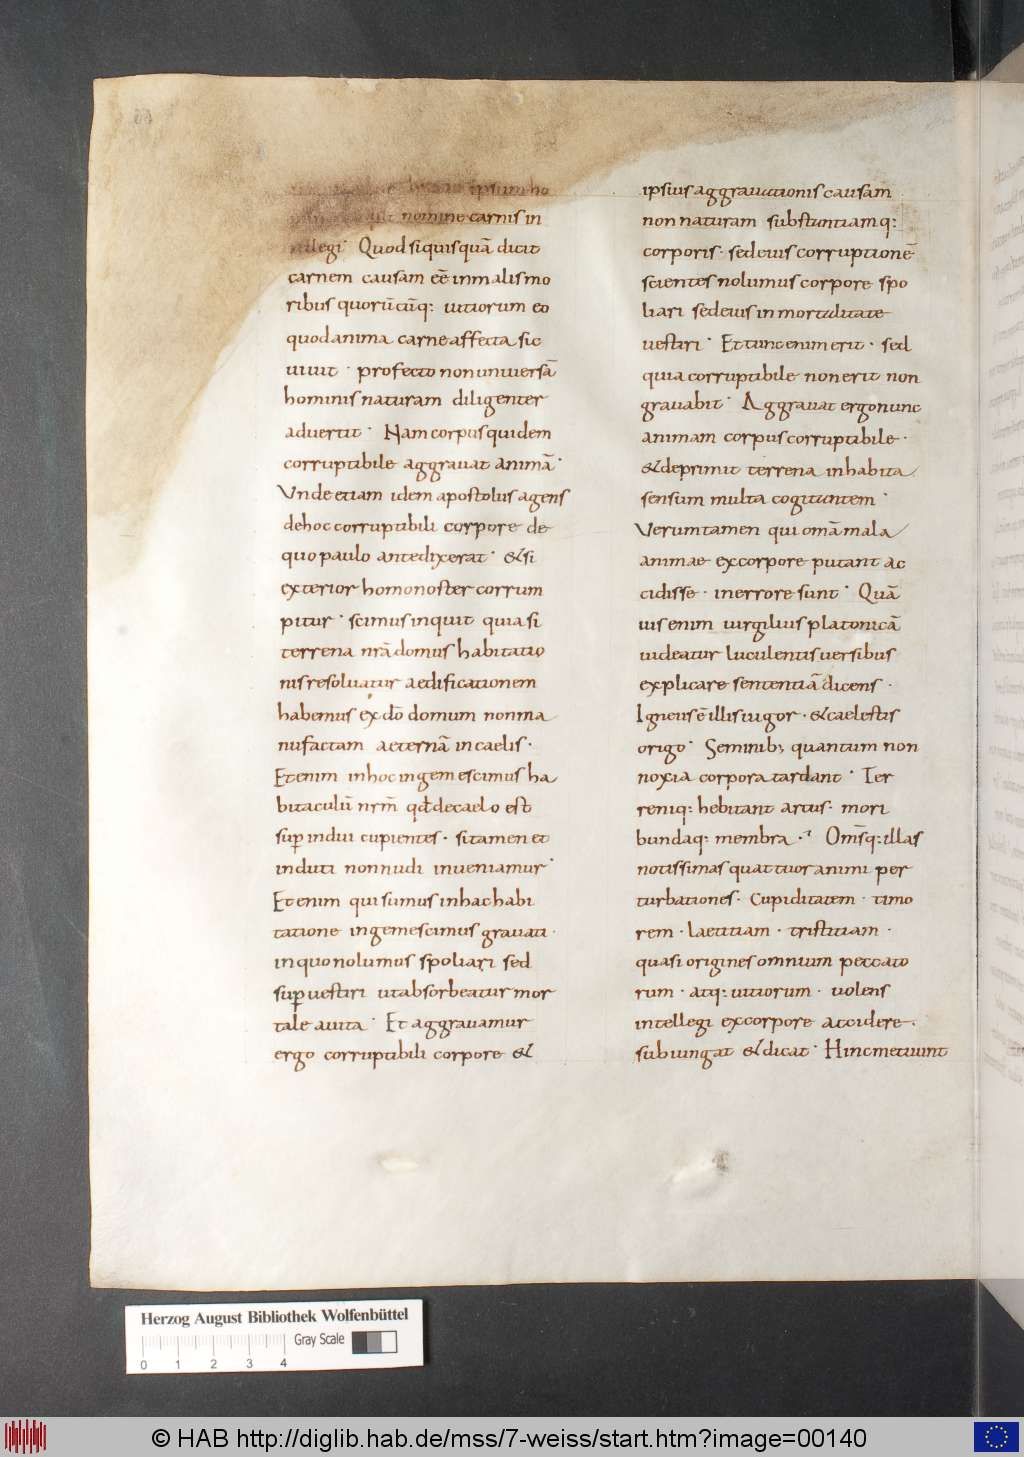 ipsum ho
nomine carnis in
tellegi. Quod si quis quā dicit
carnem causam eē in malis mo
ribus quorūcūq: uitiorum eo
quod anima carne affecta sic
uiuit. profecto non uniuersā
hominis naturam diligenter
aduertit. Nam corpus quidem
corruptibile aggrauat animā.
Vnde etiam idem apostolus agens
de hoc corruptibili corpore de
quo paulo ante dixerat. & si
exterior homo noster corrum
pitur. scimus inquit quia si
terrena nr̄a domus habitatio
nis resoluatur aedificationem
habemus ex dō domum non ma
nufactam aeternā in caelis.
Etenim in hoc ingemescimus ha
bitaculū nr̄m qđ de caelo est
sup indui cupientes. si tamen et
induti non nudi inueniamur.
Etenim qui sumus in hac habi
tatione ingemescimus grauati.
in quo nolumus spoliari sed
sup uestiri ut absorbeatur mor
tale a uita. Et aggrauamur
ergo corruptibili corpore &
ipsius aggrauationis causam
non naturam substantiamq:
corporis. sed eius corruptionē
scientes nolumus corpore spo
liari sed eius inmortalitate
uestiri. Et tunc enim erit. sed
quia corruptibile non erit non
grauabit. Aggrauat ergo nunc
animam corpus corruptibile.
& deprimit terrena inhabita
sensum multa cogitantem.
Verumtamen qui omā mala
animae ex corpore putant ac
cidisse. in errore sunt. Quā
uis enim uirgilius platonicā
uideatur luculentis uersibus
explicare sententiā dicens.
Igneus ē illis uigor. & caelestis
origo. Seminib; quantum non
noxia corpora tardant. Ter
reniq: hebitant artus. mori
bundaq: membra. Om̄sq: illas
notissimas quattuor animi per
turbationes. Cupiditatem. timo
rem. laetitiam. tristitiam.
quasi origines omnium peccato
rum. atq: uitiorum. uolens
intellegi ex corpore accidere.
subiungat & dicat. Hinc metuunt
Herzog August Bibliothek Wolfenbüttel
Gray Scale
0 1 2 3 4
© HAB http://diglib.hab.de/mss/7-weiss/start.htm?image=00140